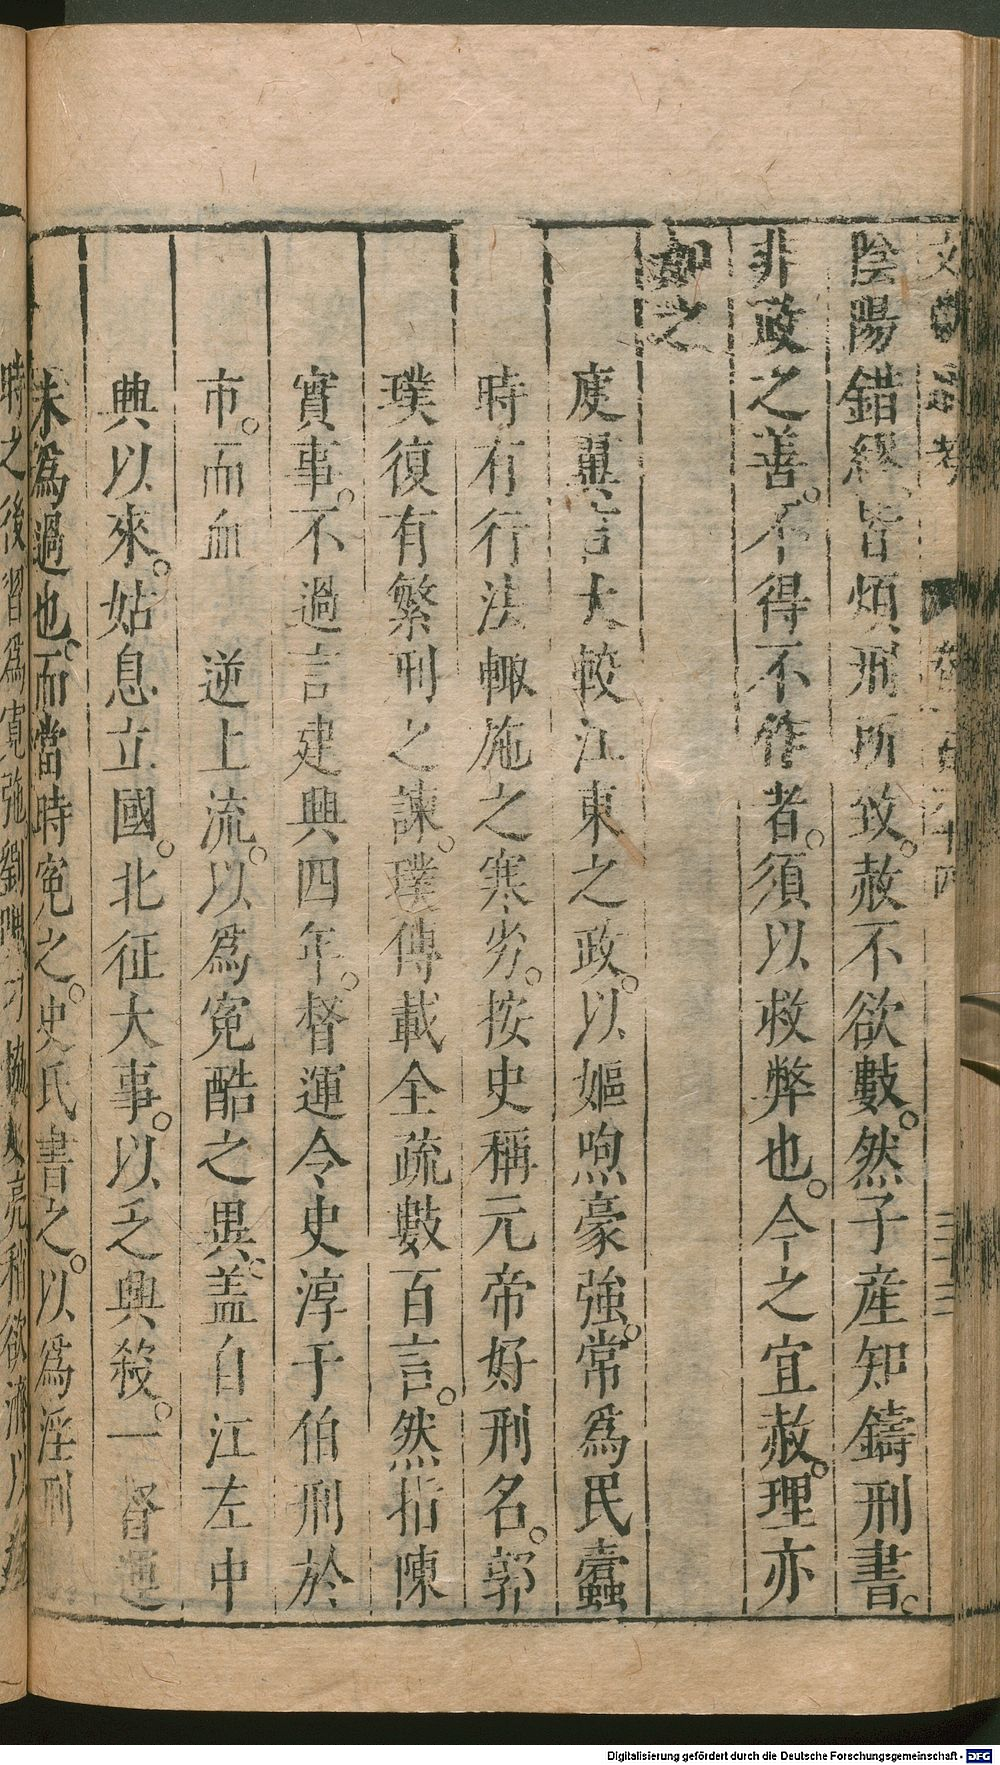 陰陽錯繆皆煩刑所致。赦不欲數。然子產知鑄刑書。
非政之善。不得不作者。須以救弊也。今之宜赦。理亦
如之
庾翼言大較江東之政。以嫗煦豪強。常爲民蠹
時有行法輒施之寒劣。按史稱元帝好刑名。郭
璞復有繁刑之諫。璞傳載全疏數百言。然指陳
實事。不過言建興四年。督運令史淳于伯刑於
市。而血 逆上流。以爲冤酷之異。盖自江左中
興以來。姑息立國。北征大事。以乏興殺。一督運
未爲過也。而當時冤之。史氏書之。以爲淫刑
時之後習爲寬弛劉隗刁協
Digitalisierung gefördert durch die Deutsche Forschungsgemeinschaft - DFG